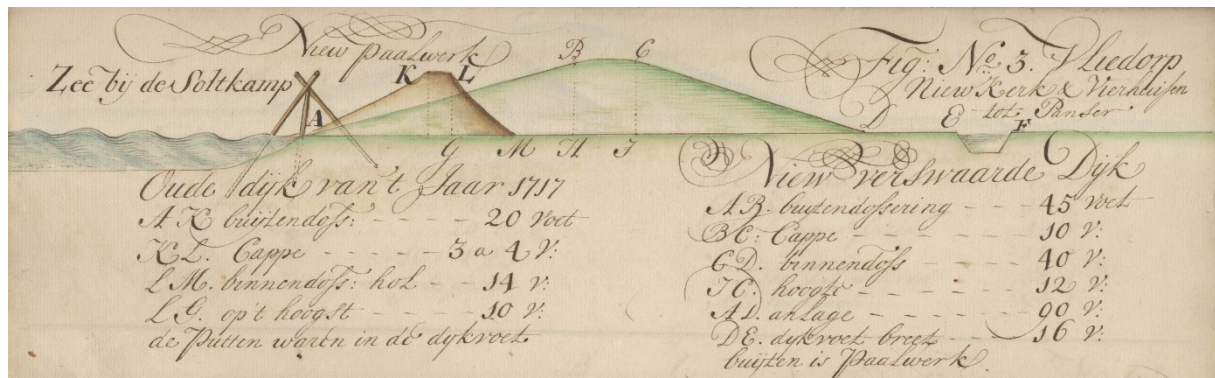 Niew paalwerk
Zee bij de Soltkamp
A
K L
B C
D
E F
G M H J
Fig: No. 3. Vliedorp
Niew Kerk & Vierhuisen
tot Panser
Oude dijk van't Jaar 1717
A K buijtendoss: - - - - 20 voet
K L. Cappe - - - - - 3 a 4 v:
L M. binnendoss: hol - - 14 v:
L G. op't hoogst - - - - 10 v:
de Putten waren in de dykvoet
Niew verswaarde Dyk
A B. buytendossering - - - 45 voet
B C: Cappe - - - - - - 10 v:
C D. binnendoss - - - - 40 v:
J C: hoogte - - - - - 12 v:
A D. anlage - - - - - - 90 v:
D E. dykvoet breet - - - 16 v:
buijten is Paalwerk.